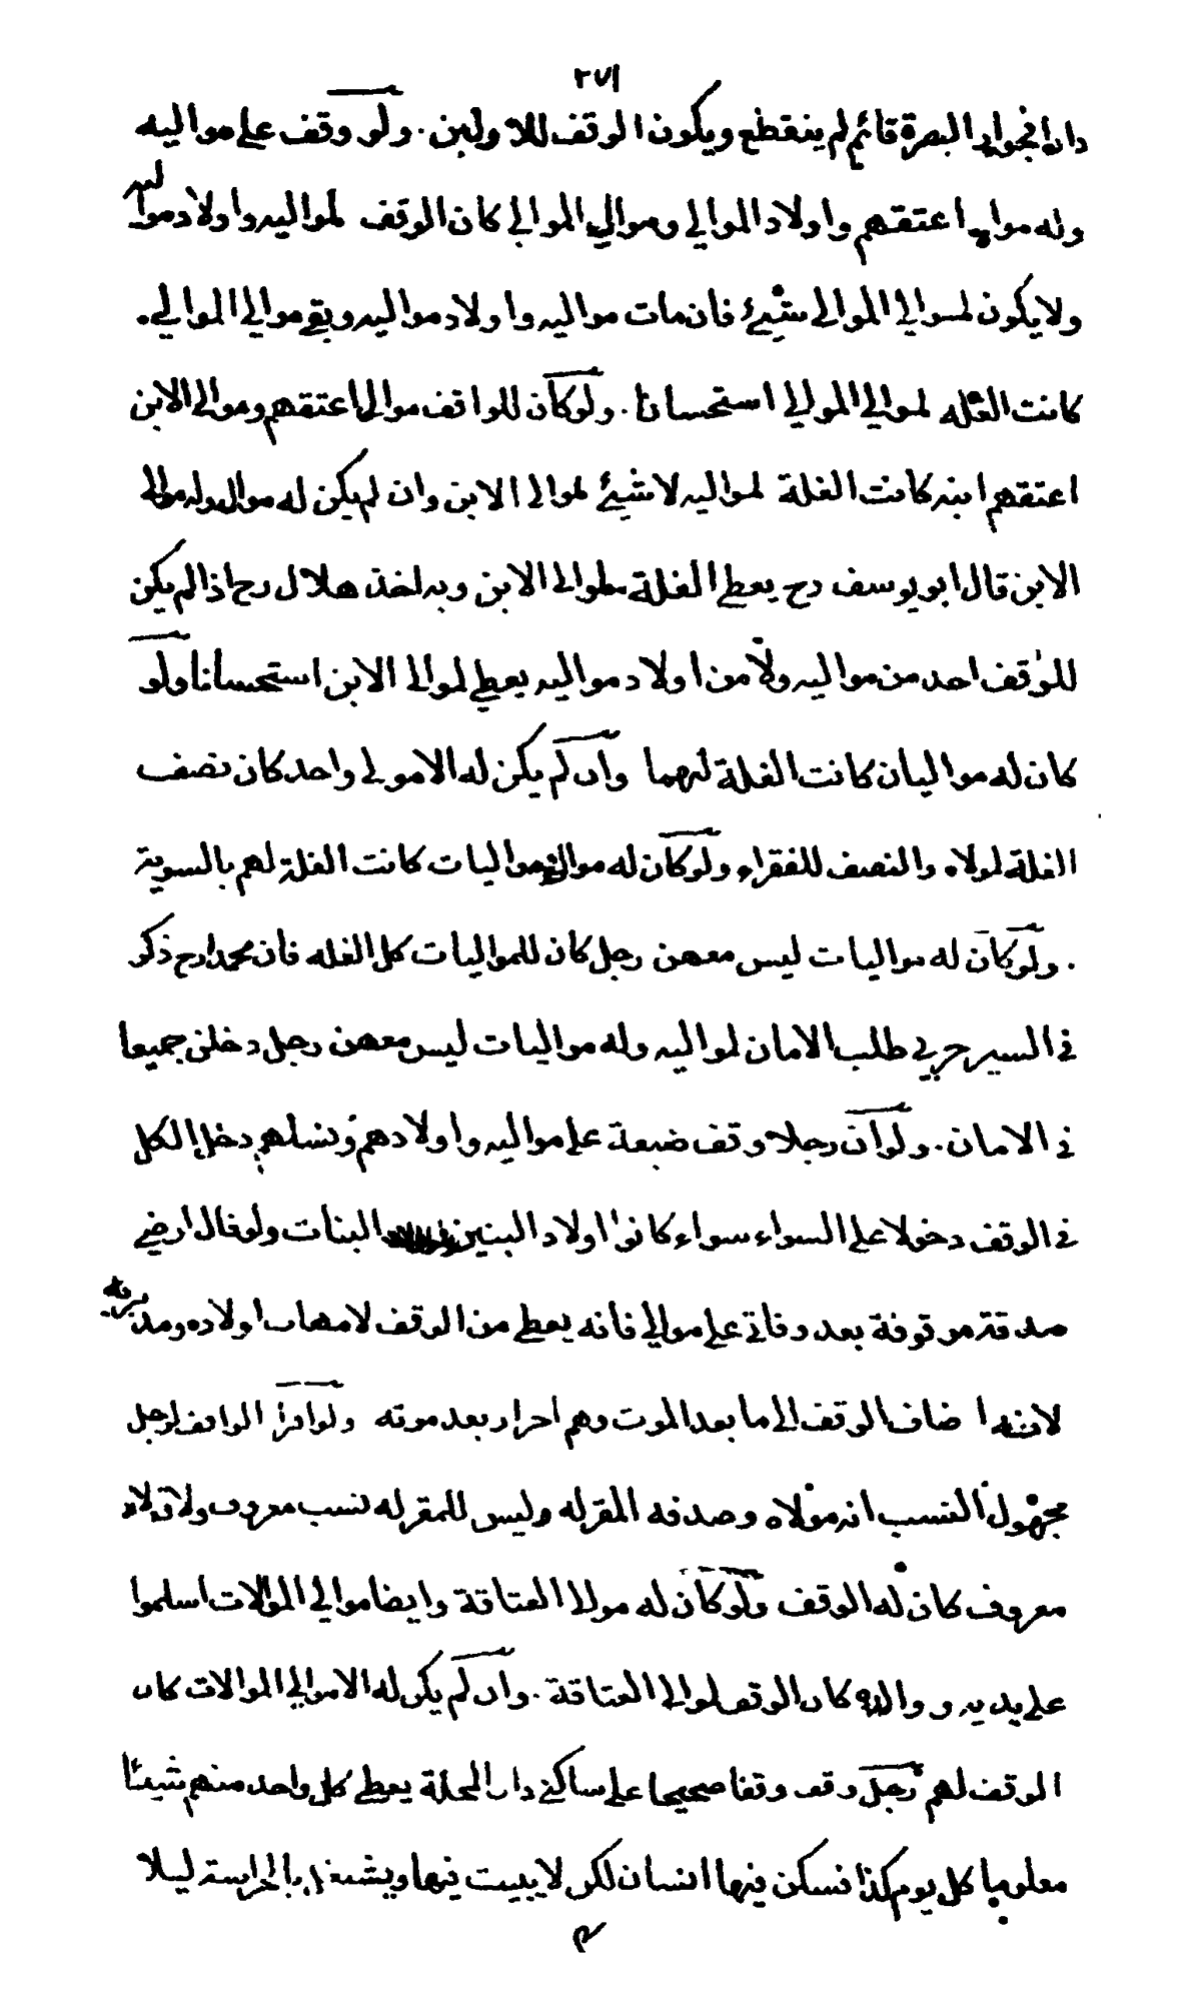 ٢٧١
دار الجوار البصرة قائم لم ينقطع ويكون الوقف للاولين. ولو وقف على مواليه
وله موالي اعتقهم واولاد الموالي وموالي الموالي كان الوقف لمواليه واولاد مواليه
ولا يكون لموالي الموالي شيئ فان مات مواليه واولاد مواليه وبقي موالي الموالي.
كانت الغله لموالي الموالي استحسانا. ولو كان للواقف موالي اعتقهم وموالي الابن
اعتقهم ابنه كانت الغلة لمواليه لا شيئ لموالي الابن وان لم يكن له موال وله موالي
الابن قال ابو يوسف رح يعطى الغلة لموالي الابن وبه اخذ هلال رح اذا لم يكن
للواقف احد من مواليه ولا من اولاد مواليه يعطى لموالي الابن استحسانا ولو
كان له مواليان كانت الغلة لهما وان لم يكن له الا مولى واحد كان نصف
الغلة لمولاه والنصف للفقراء ولو كان له موال ومواليات كانت الغلة لهم بالسوية
. ولو كان له مواليات ليس معهن رجل كان للمواليات كل الغله فان محمدا رح ذكر
في السير حربي طلب الامان لمواليه وله مواليات ليس معهن رجل دخلن جميعا
في الامان. ولو ان رجلا وقف ضيعة على مواليه واولادهم ونسلهم دخل الكل
في الوقف دخولا على السواء سواء كانوا اولاد البنين البنات ولو قال ارضي
صدقة موقوفة بعد وفاتي على موالي فانه يعطى من الوقف لامهات اولاده ومدبريه
لانه اضاف الوقف الى ما بعد الموت وهم احرار بعد موته ولو اقر الواقف لرجل
مجهول النسب انه مولاه وصدقه المقر له وليس للمقر له نسب معروف ولا ولاء
معروف كان له الوقف ولو كان له موالي العتاقة وايضا موالي الموالات اسلموا
على يديه و والوه كان الوقف لموالي العتاقة. وان لم يكن له الا موالي الموالات كان
الوقف لهم رجل وقف وقفا صحيحا على ساكني دار المحلة يعطى كل واحد منهم شيئا
معلوما كل يوم كذا فسكن فيها انسان لكن لا يبيت فيها ويشتغل بالحراسة ليلا